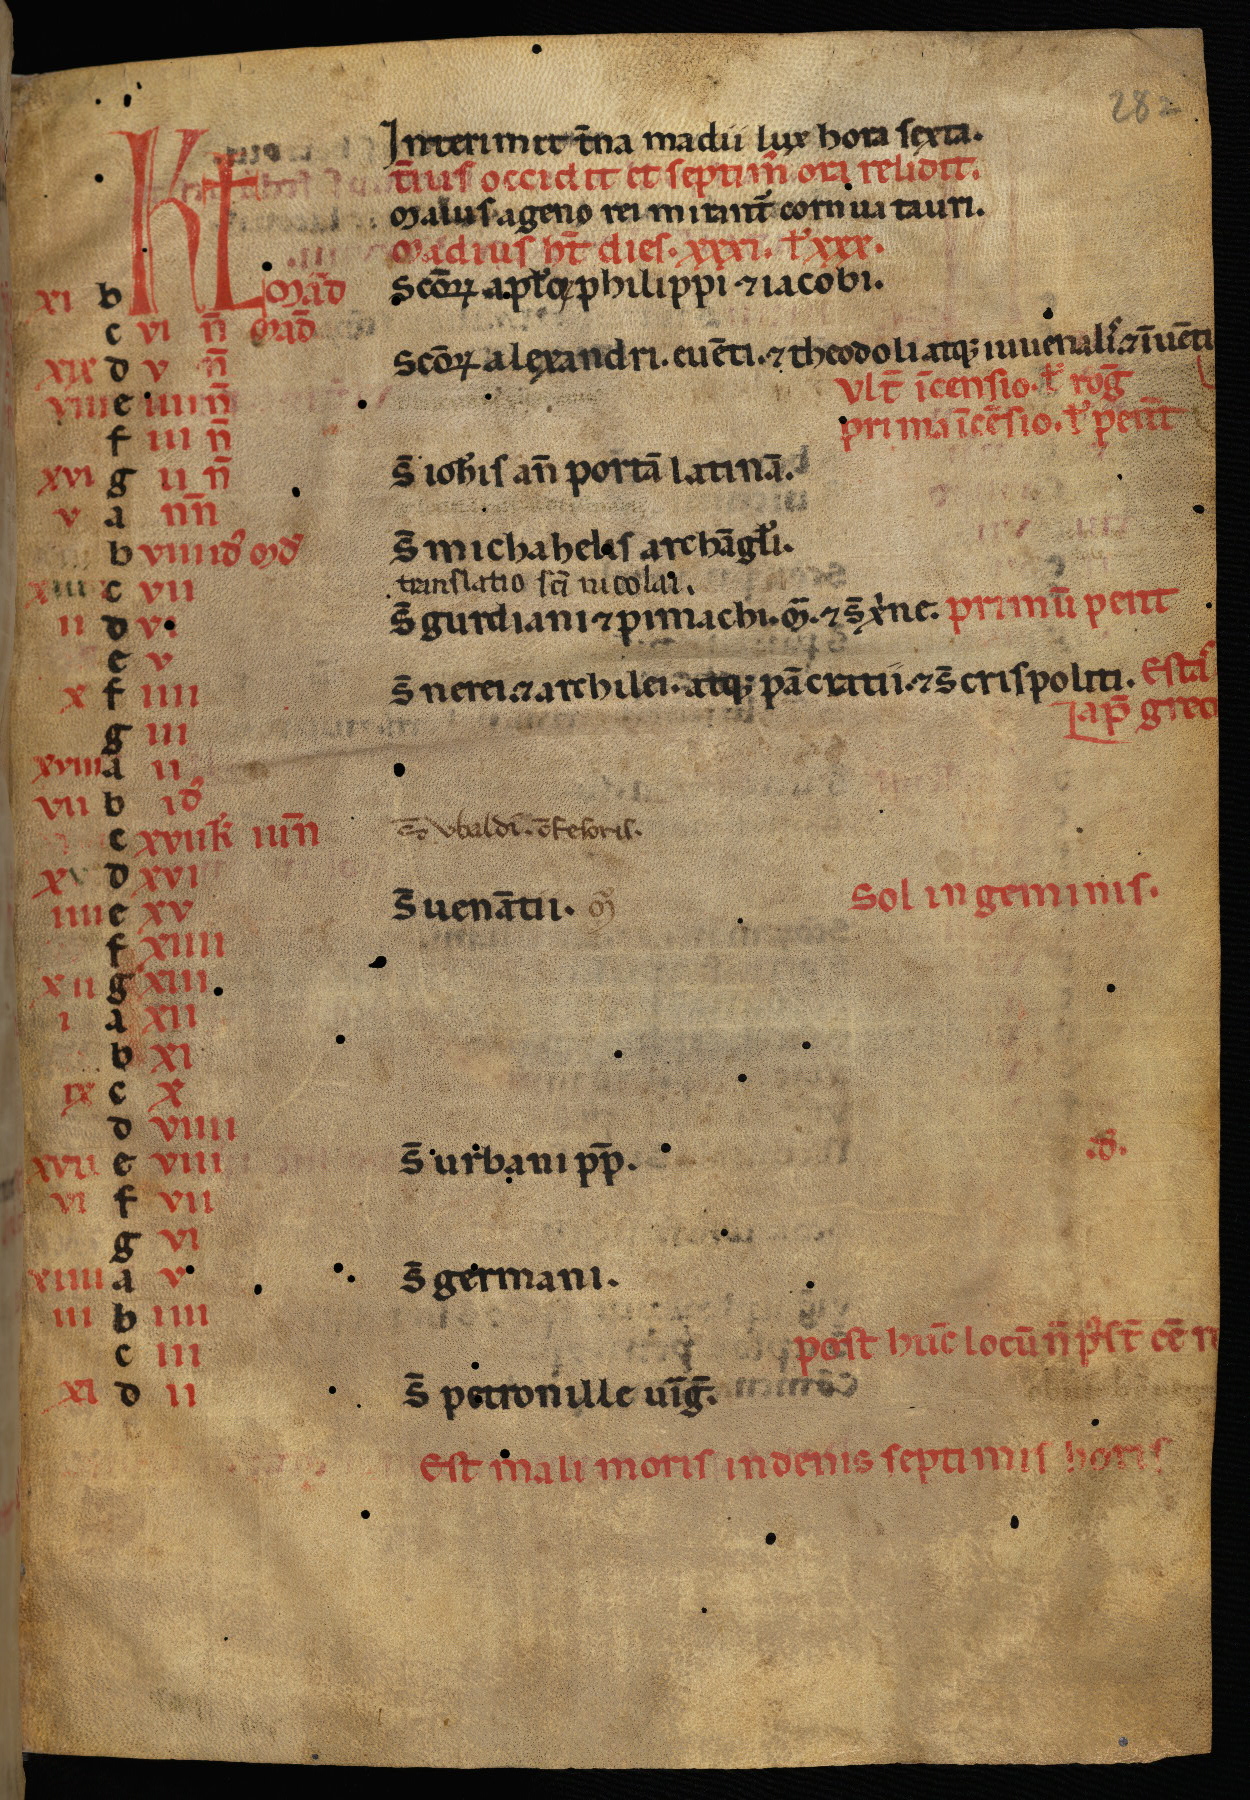 282
Interimit t̄na madii lux hora sexta.
t̄ius occidit et septim̄ ora relidit.
Malus ageno rei mirant̄ cornua tauri.
KL Madius ht̄ dies. xxxi. l' xxx.
xi b Mad̄ Scōꝝ apl'oꝝ philippi ⁊ iacobi.
c vi n̄ Mad̄
xix d v n̄ Scōꝝ alexandri. euēti. ⁊ theodoli atqꝫ iuuenal' ⁊ iuuēti
viii e iiii n̄ Vlt̄ īcensio. l' rog̅
f iii n̄ prima īcēsio. l' pent̄
xvi g ii n̄ S̄ ioh'is an̄ portā latinā.
v a nn̄
b viii id' Md̄ S̄ michahelis archāgl'i.
xiii c vii translatio sc̄i nicolai.
ii d vi S̄ gurdiani ⁊ pimachi. ⁊ S̄ xp̄ne. primū pent
e v
x f iiii S̄ nerei. ⁊ archilei. atqꝫ pācratii. ⁊ S̄ crispoliti. Estas
ap̄ grec
g iii
xviii a ii
vii b id'
c xvii k̄l iun̄ S̄ vbaldi. ɔfesoris.
xv d xvi
iiii e xv S̄ uenātii. Sol in geminis.
f xiiii
xii g xiii
i a xii
b xi
ix c x
d viiii
xvii e viii S̄ urbani pp̄. .d'.
vi f vii
g vi
xiiii a v S̄ germani.
iii b iiii
c iii post hūc locū n̄ p̄st̄ eē
xi d ii S̄ petronille uīg̅.
Est mali moris indenis septimis horis